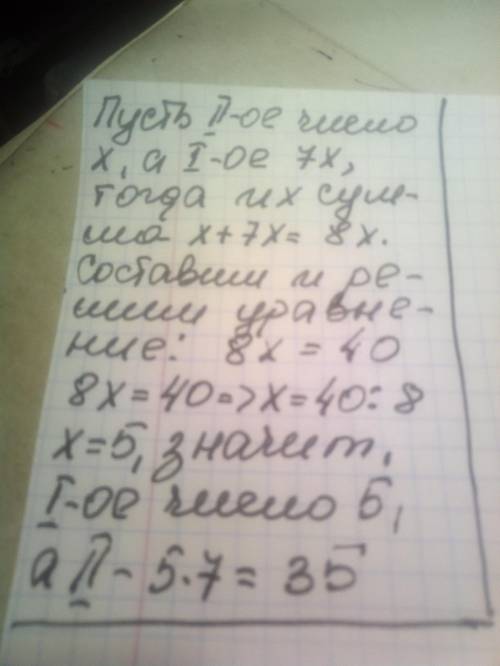 Пусть II-ое число
x, а I-ое 7x,
тогда их сум-
ма x+7x= 8x.
Составим и ре-
шим уравне-
ние: 8x = 40
8x=40=>x=40:8
x=5, значит,
I-ое число 5,
а II- 5·7= 35